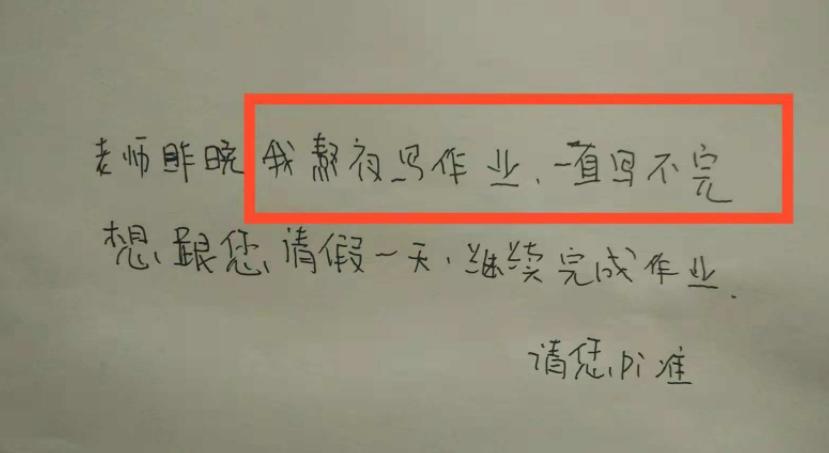 老师昨晚我熬夜写作业、一直写不完
想跟您请假一天、继续完成作业.
请您pi准